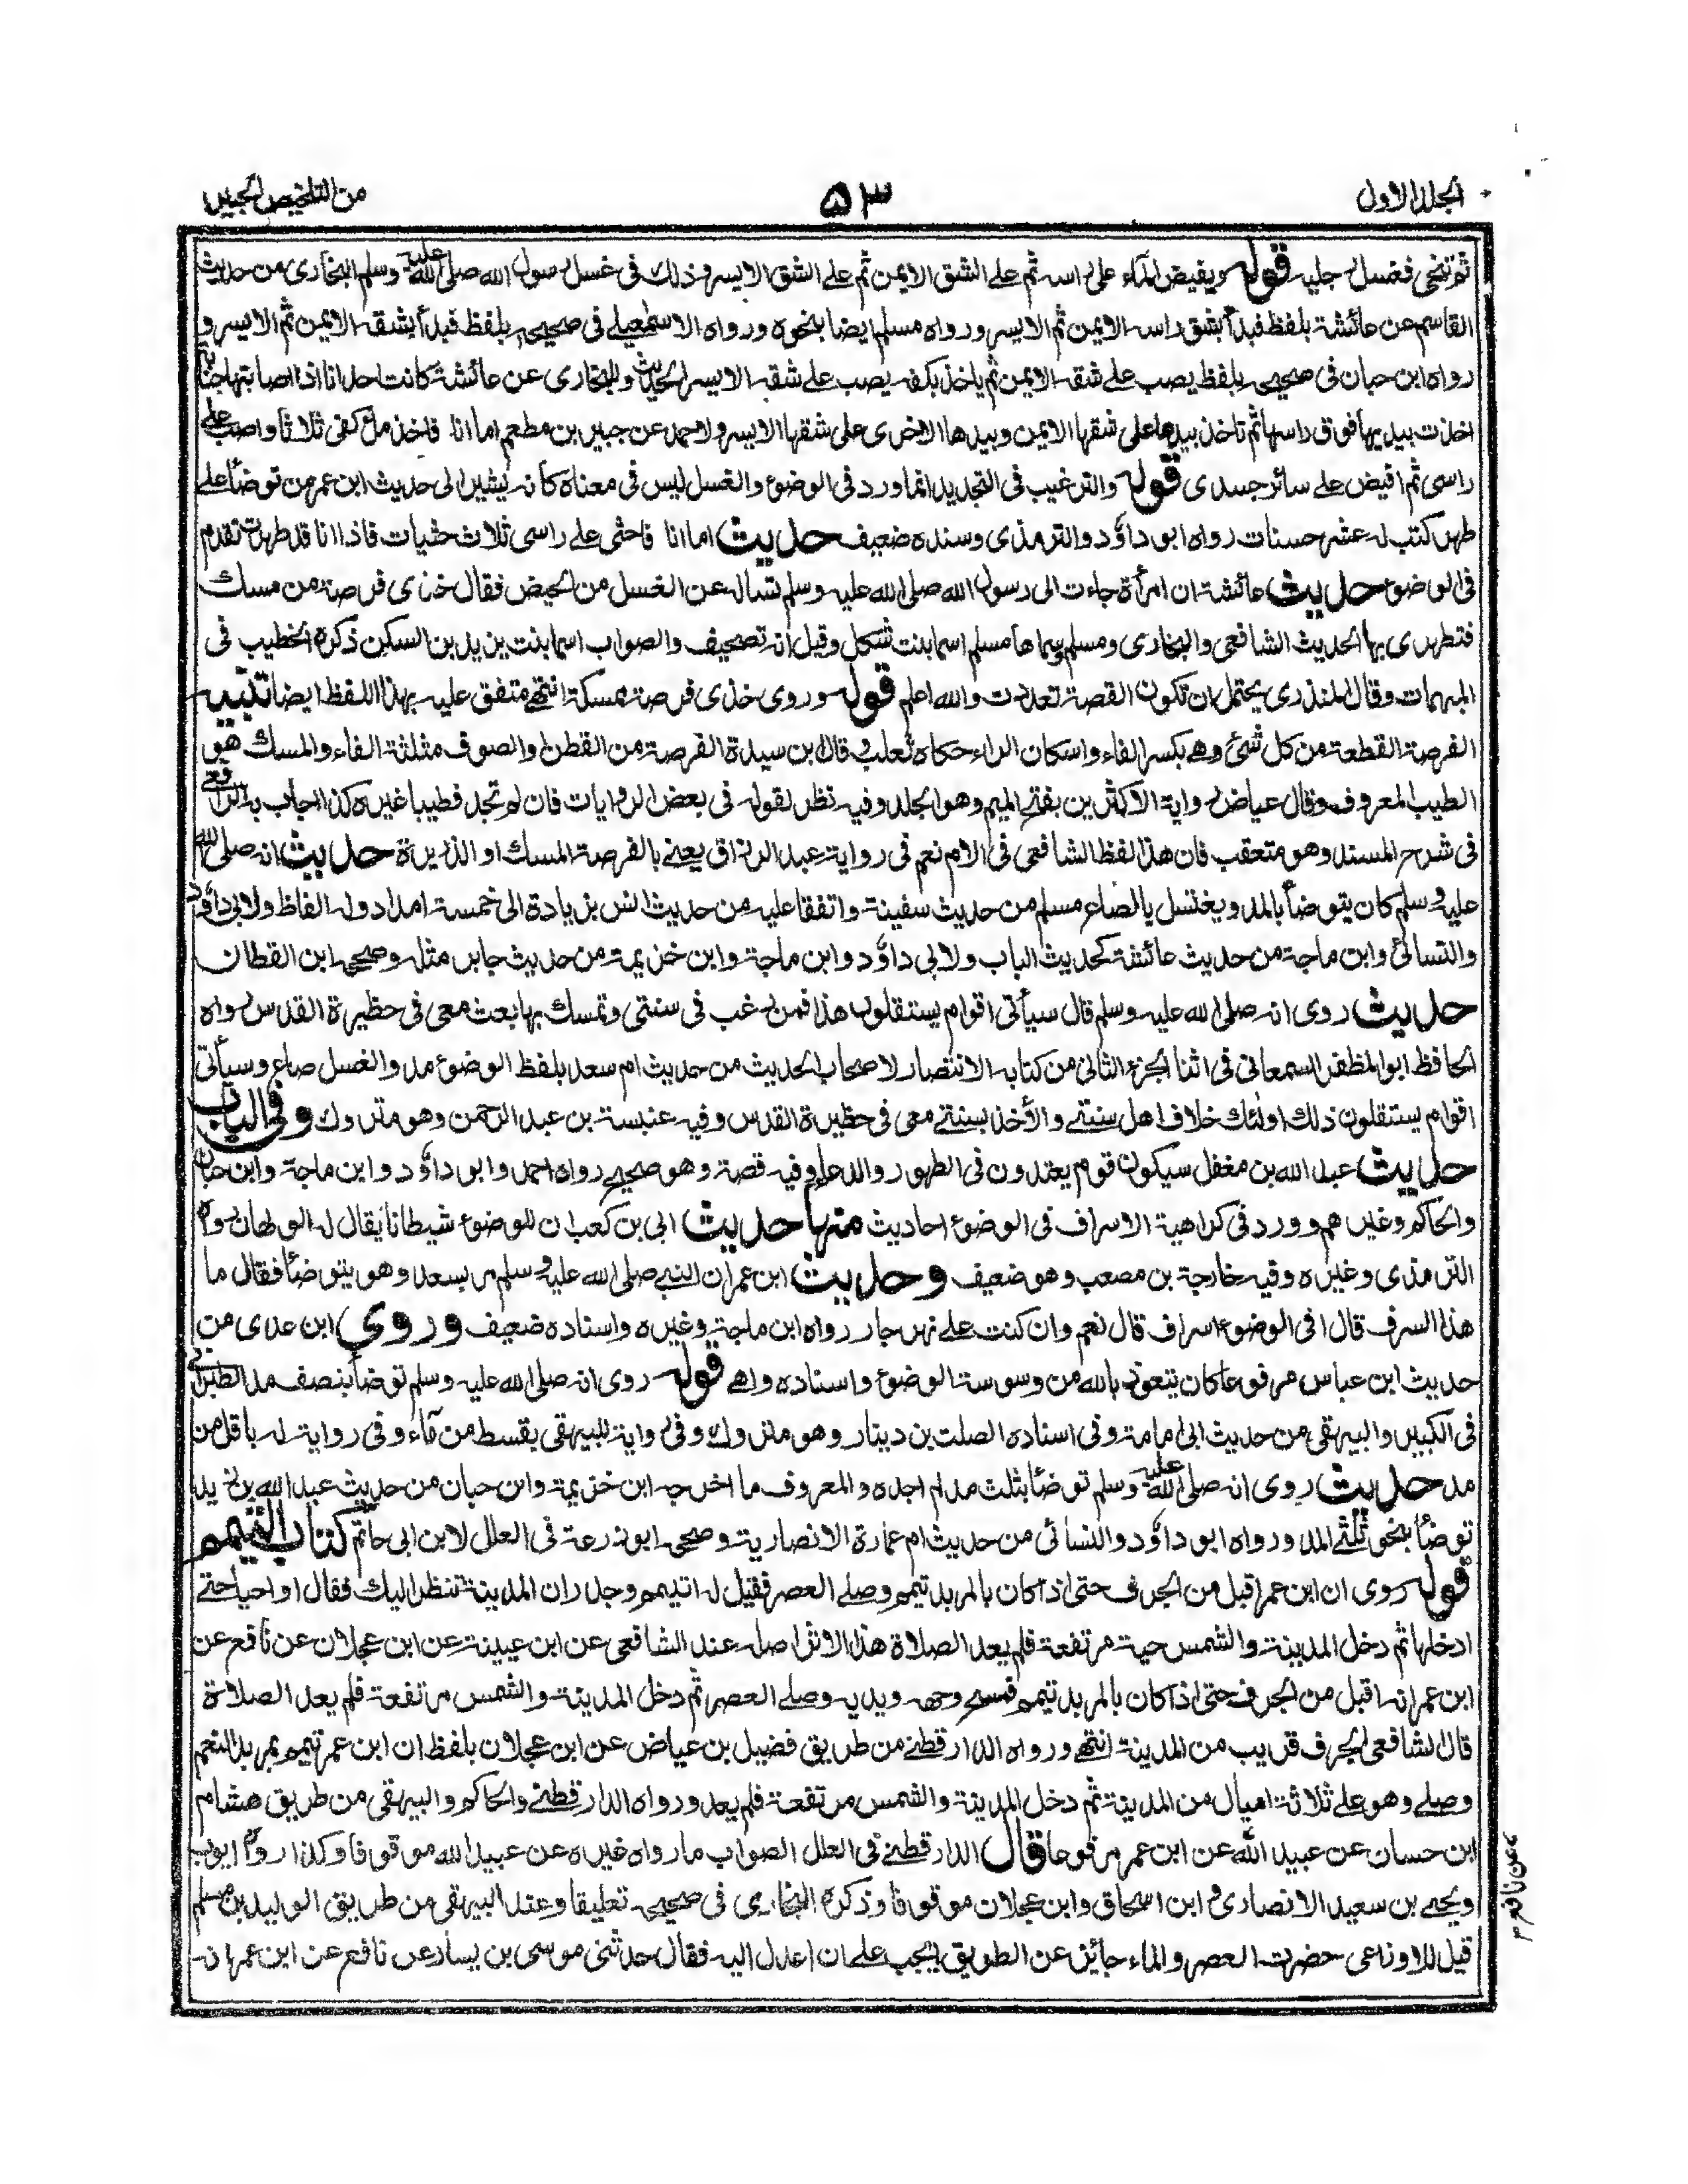 الجلد الاول
٥٣
من التلخيص الحبير
ثم تنحى فغسل رجليه قوله ويفيض الماء على راسه ثم على الشق الايمن ثم على الشق الايسر وذلك فى غسل رسول الله صلى الله عليه وسلم البخارى من حديث
القاسم عن عائشة بلفظ فبدأ بشق راسه الايمن ثم الايسر ورواه مسلم ايضا بنحوه ورواه الاسمعيلى فى صحيحه بلفظ فبدأ بشقه الايمن ثم الايسر و
رواه ابن حبان فى صحيحه بلفظ يصب على شقه الايمن ثم ياخذ بكفه يصب على شقه الايسر الحديث وللبخارى عن عائشة كانت احدانا اذا اصابتها جنابة
اخذت بيديها فوق راسها ثم تاخذ بيدها على شقها الايمن وبيدها الاخرى على شقها الايسر ولاحمد عن جبير بن مطعم اما انا فاخذ ملء كفى ثلاثا واصب على
راسى ثم افيض على سائر جسدى قوله والترغيب فى التجديد انما ورد فى الوضوء والغسل ليس فى معناه كأنه يشير الى حديث ابن عمر من توضأ على
طهر كتب له عشر حسنات رواه ابو داؤد والترمذى وسنده ضعيف حديث اما انا فاحثى على راسى ثلاث حثيات فاذا انا قد طهرت تقدم
فى الوضوء حديث عائشة ان امرأة جاءت الى رسول الله صلى الله عليه وسلم تساله عن الغسل من الحيض فقال خذى فرصة من مسك
فتطهرى بها الحديث الشافعى والبخارى ومسلم وسماها مسلم اسما بنت شكل وقيل انه تصحيف والصواب اسما بنت يزيد بن السكن ذكره الخطيب فى
المبهمات وقال المنذرى يحتمل ان تكون القصة تعددت والله اعلم قوله وروى خذى فرصة ممسكة انتهى متفق عليه بهذا اللفظ ايضا تنبيه
الفرصة القطعة من كل شئ وهى بكسر الفاء واسكان الراء حكاه ثعلب وقال ابن سيدة الفرصة من القطن او الصوف مثلثة الفاء والمسك هو
الطيب المعروف وقال عياض رواية الاكثرين بفتح الميم وهو الجلد وفيه نظر لقوله فى بعض الروايات فان لم تجد فطيبا غيره كذا اجاب به الرافعى
فى شرح المسند وهو متعقب فان هذا لفظ الشافعى فى الام نعم فى رواية عبد الرزاق يعنى بالفرصة المسك او الذريرة حديث انه صلى الله
عليه وسلم كان يتوضأ بالمد ويغتسل بالصاع مسلم من حديث سفينة واتفقا عليه من حديث انس بزيادة الى خمسة امداد وله الفاظ ولابى داؤد
والنسائى وابن ماجة من حديث عائشة كحديث الباب ولابى داؤد وابن ماجة وابن خزيمة من حديث جابر مثله وصححه ابن القطان
حديث روى انه صلى الله عليه وسلم قال سيأتى اقوام يستقلون هذا فمن رغب فى سنتى وتمسك بها بعث معى فى حظيرة القدس رواه
الحافظ ابو المظفر السمعانى فى اثنا الجزء الثانى من كتابه الانتصار لاصحاب الحديث من حديث ام سعد بلفظ الوضوء مد والغسل صاع وسيأتى
اقوام يستقلون ذلك اولئك خلاف اهل سنتى والأخذ بسنتى معى فى حظيرة القدس وفيه عنبسة بن عبد الرحمن وهو متروك وفى الباب
حديث عبد الله بن مغفل سيكون قوم يعتدون فى الطهور والدعاء وفيه قصة وهو صحيح رواه احمد وابو داؤد وابن ماجة وابن حبان
والحاكم وغيرهم وورد فى كراهية الاسراف فى الوضوء احاديث منها حديث ابى بن كعب ان للوضوء شيطانا يقال له الولهان رواه
الترمذى وغيره وفيه خارجة بن مصعب وهو ضعيف وحديث ابن عمر ان النبى صلى الله عليه وسلم مر بسعد وهو يتوضأ فقال ما
هذا السرف قال افى الوضوء اسراف قال نعم وان كنت على نهر جار رواه ابن ماجة وغيره واسناده ضعيف وروى ابن عدى من
حديث ابن عباس مرفوعا كان يتعوذ بالله من وسوسة الوضوء واسناده واهى قوله روى انه صلى الله عليه وسلم توضأ بنصف مد الطبرانى
فى الكبير والبيهقى من حديث ابى امامة وفى اسناده الصلت بن دينار وهو متروك وفى رواية للبيهقى بقسط من ماء وفى رواية له باقل من
مد حديث روى انه صلى الله عليه وسلم توضأ بثلث مد لم اجده والمعروف ما اخرجه ابن خزيمة وابن حبان من حديث عبد الله بن زيد
توضأ بنحو ثلثى المد ورواه ابو داؤد والنسائى من حديث ام عمارة الانصارية وصححه ابو زرعة فى العلل لابن ابى حاتم كتاب التيمم
قوله روى ان ابن عمر اقبل من الجرف حتى اذا كان بالمربد تيمم وصلى العصر فقيل له اتيمم وجدران المدينة تنظر اليك فقال او احيا حتى
ادخلها ثم دخل المدينة والشمس حية مرتفعة فلم يعد الصلاة هذا الاثر اصله عند الشافعى عن ابن عيينة عن ابن عجلان عن نافع عن
ابن عمر انه اقبل من الجرف حتى اذا كان بالمربد تيمم فمسح وجهه ويديه وصلى العصر ثم دخل المدينة والشمس مرتفعة فلم يعد الصلاة
قال الشافعى الجرف قريب من المدينة انتهى ورواه الدارقطنى من طريق فضيل بن عياض عن ابن عجلان بلفظ ان ابن عمر تيمم بمربد النعم
وصلى وهو على ثلاثة اميال من المدينة ثم دخل المدينة والشمس مرتفعة فلم يعد ورواه الدارقطنى والحاكم والبيهقى من طريق هشام
ابن حسان عن عبيد الله عن ابن عمر مرفوعا قال الدارقطنى فى العلل الصواب ما رواه غيره عن عبيد الله موقوفا وكذا رواه ايوب
ويحيى بن سعيد الانصارى وابن اسحاق وابن عجلان موقوفا وذكره البخارى فى صحيحه تعليقا وعند البيهقى من طريق الوليد بن مسلم
قيل للاوزاعى حضرت العصر والماء جائز عن الطريق ايجب على ان اعدل اليه فقال حدثنى موسى بن يسار عن نافع عن ابن عمر انه
عن نافع م